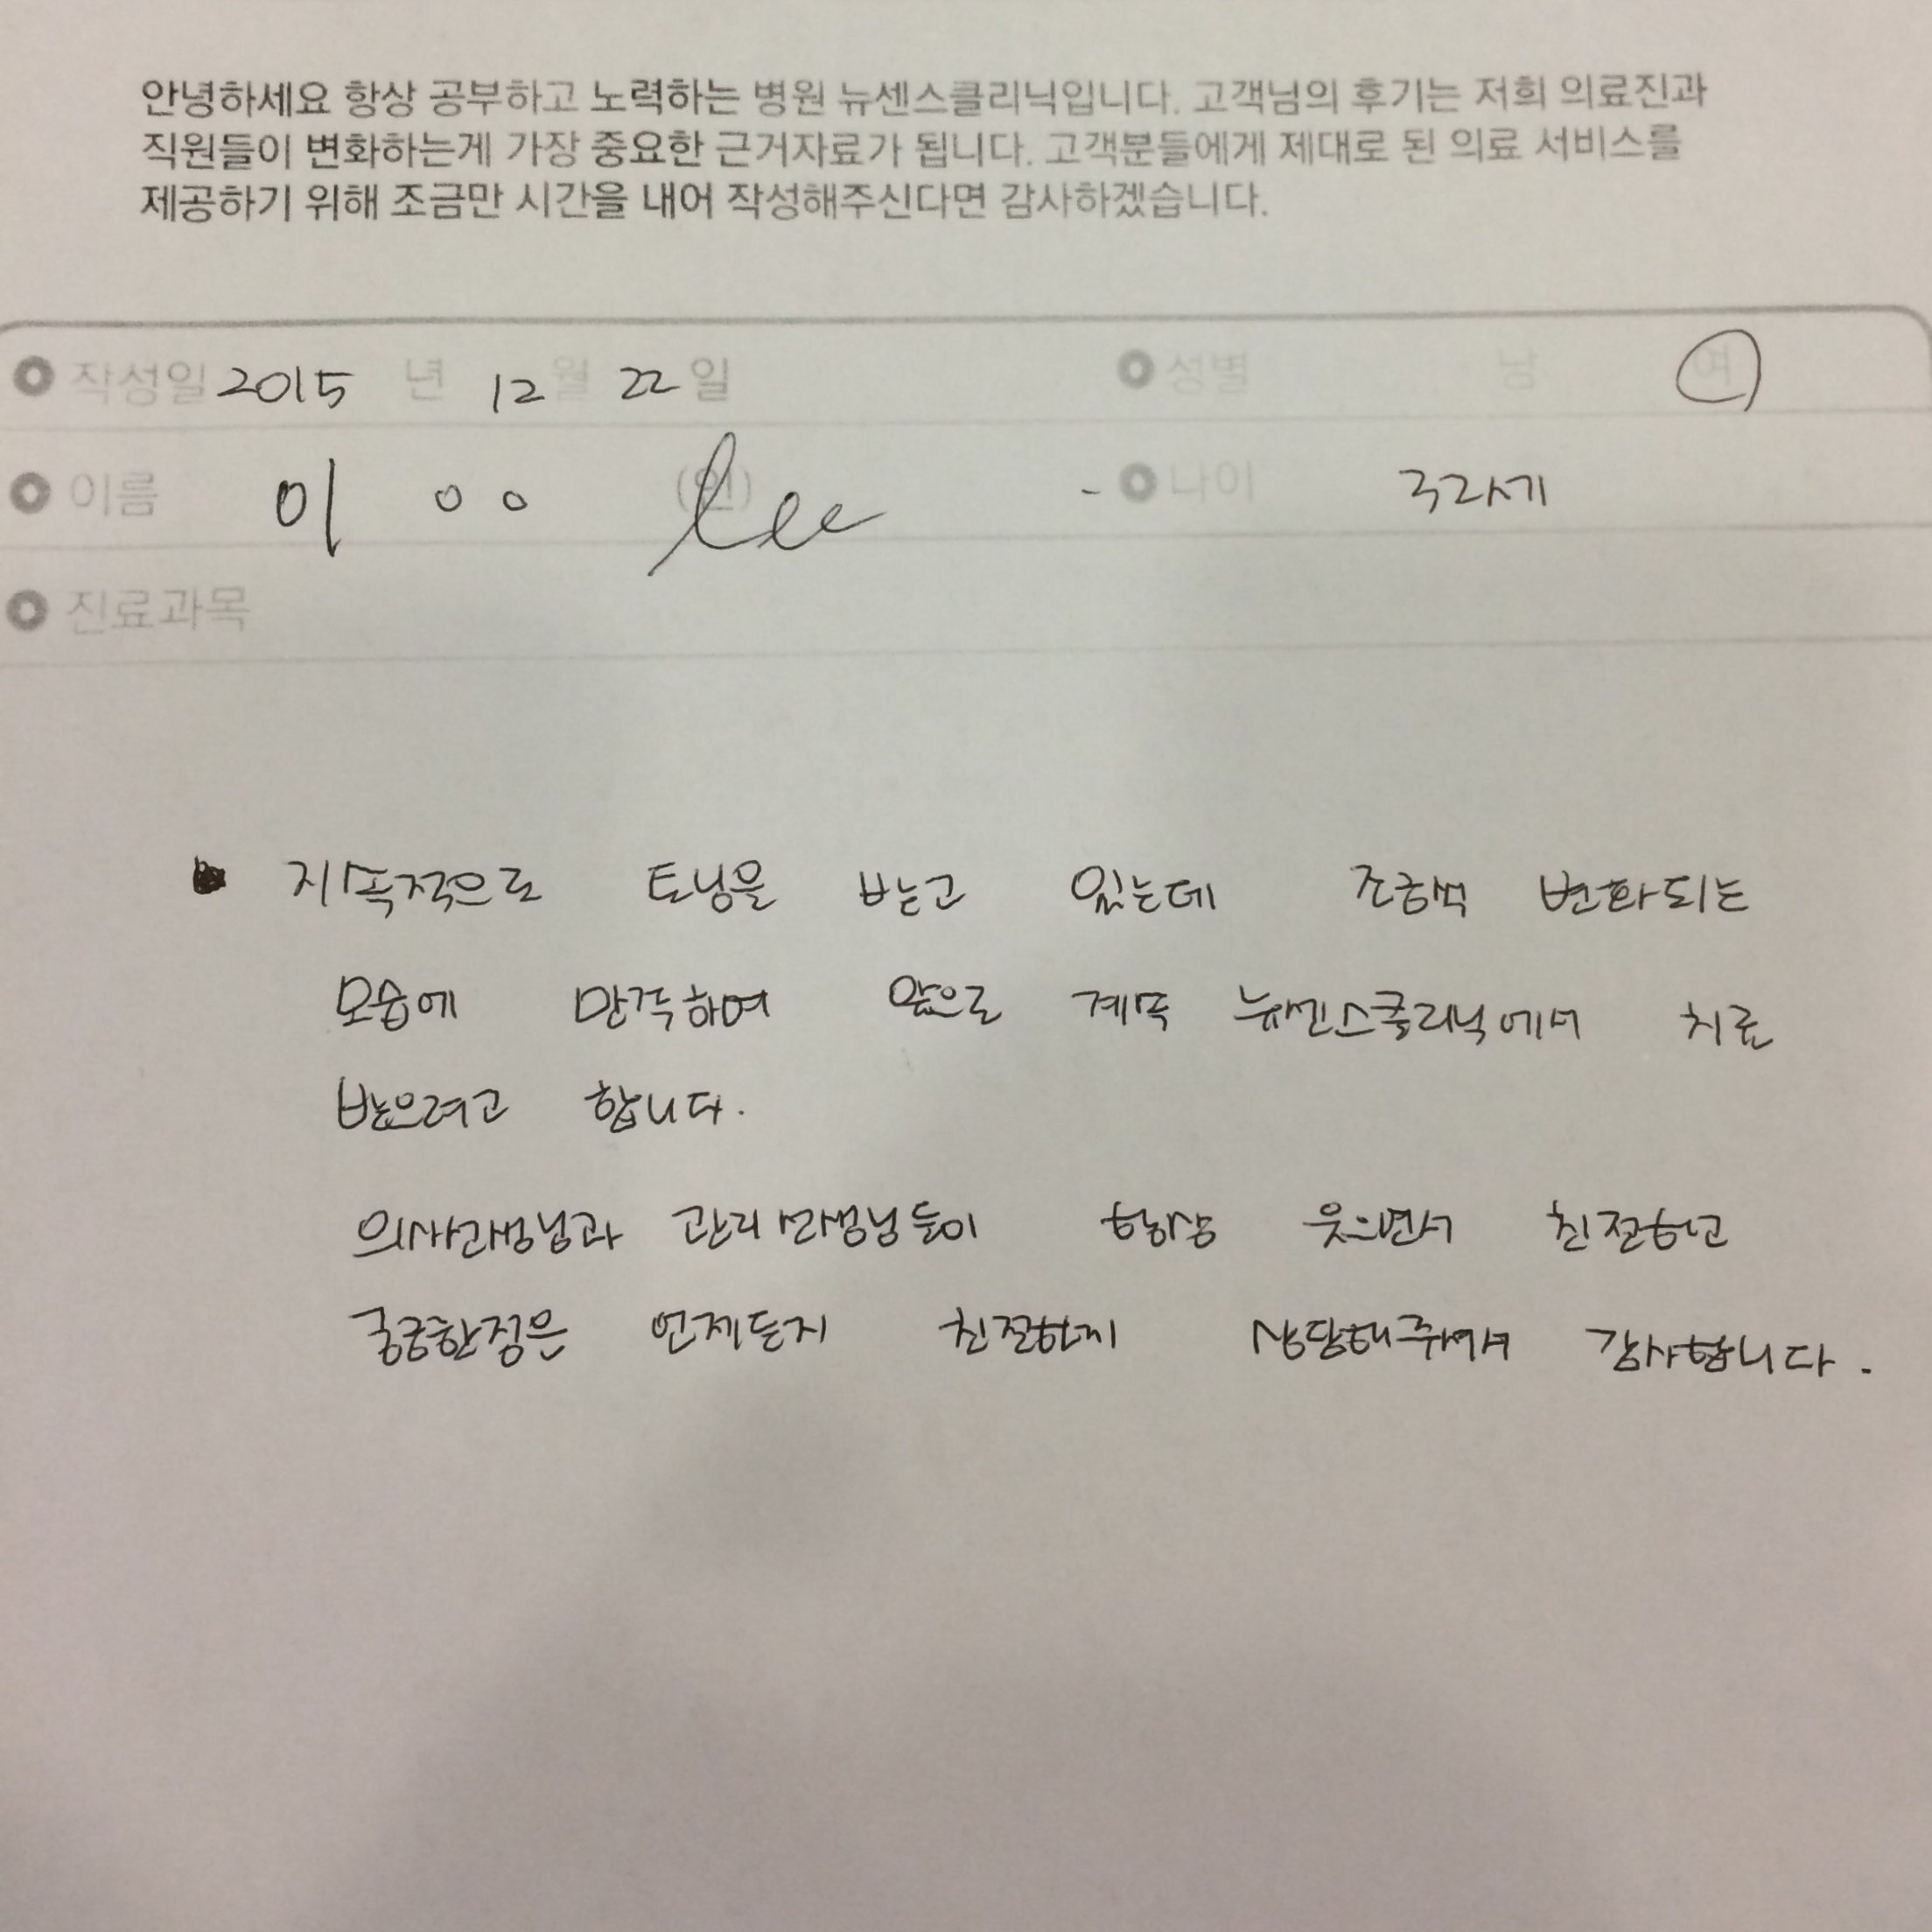 안녕하세요 항상 공부하고 노력하는 병원 뉴센스클리닉입니다. 고객님의 후기는 저희 의료진과
직원들이 변화하는게 가장 중요한 근거자료가 됩니다. 고객분들에게 제대로 된 의료 서비스를
제공하기 위해 조금만 시간을 내어 작성해주신다면 감사하겠습니다.
작성일 2015 년 12 월 22 일 성별 남 여
이름 이 ○○ (인) lee 나이 32세
진료과목
지속적으로 토닝을 받고 있는데 조금씩 변화되는
모습에 만족하여 앞으로 계속 뉴센스클리닉에서 치료
받으려고 합니다.
의사선생님과 관리선생님들이 항상 웃으면서 친절하고
궁금한점은 언제든지 친절하게 상담해주셔서 감사합니다.